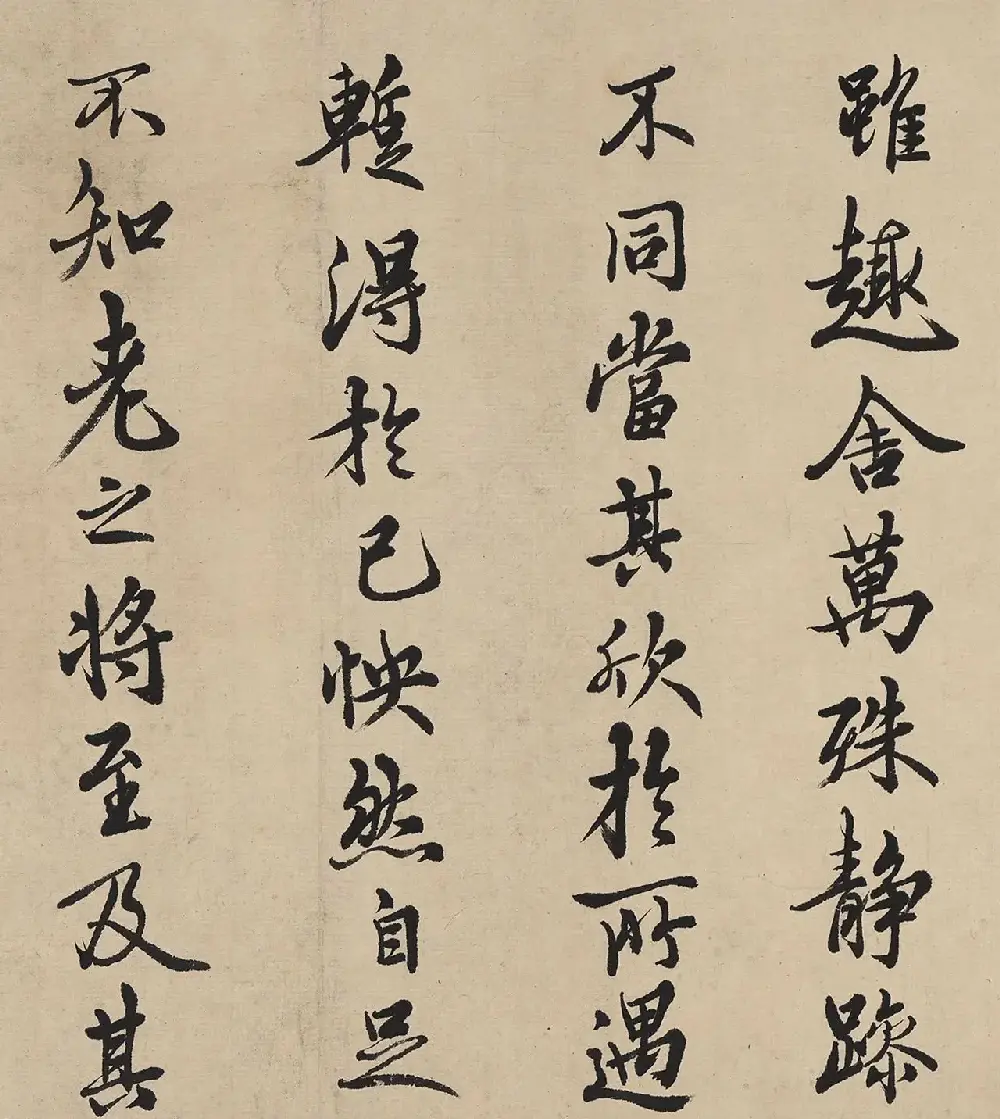 雖趣舍萬殊靜躁
不同當其欣於所遇
暫得於己怏然自足
不知老之將至及其